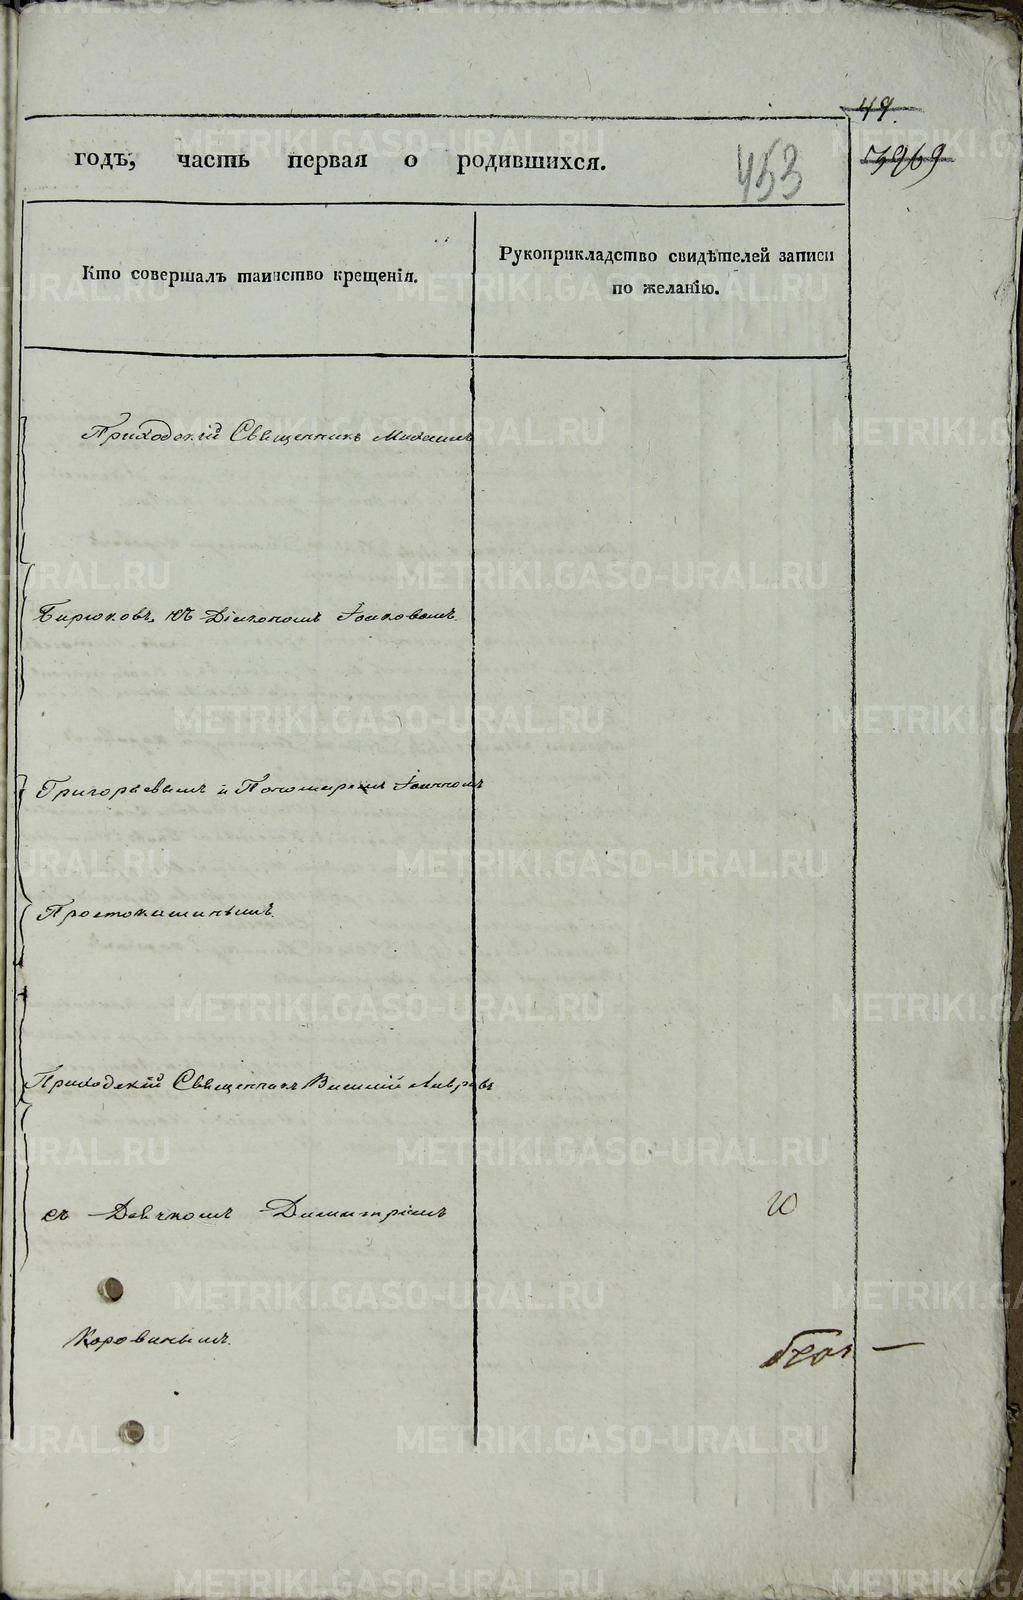 49.
годъ, часть первая о родившихся.
453
3969
Кто совершалъ таинство крещенія.
Рукоприкладство свидѣтелей записи
по желанію.
Приходскій Священникъ Михаилъ
Бирюковъ, съ Діакономъ Іаковомъ
Григорьевымъ и Пономаремъ Іоанномъ
Простокишинымъ.
Приходскій Священникъ Василій Лавровъ
съ Дьячкомъ Димитріемъ
Коровинымъ.
METRIKI.GASO-URAL.RU